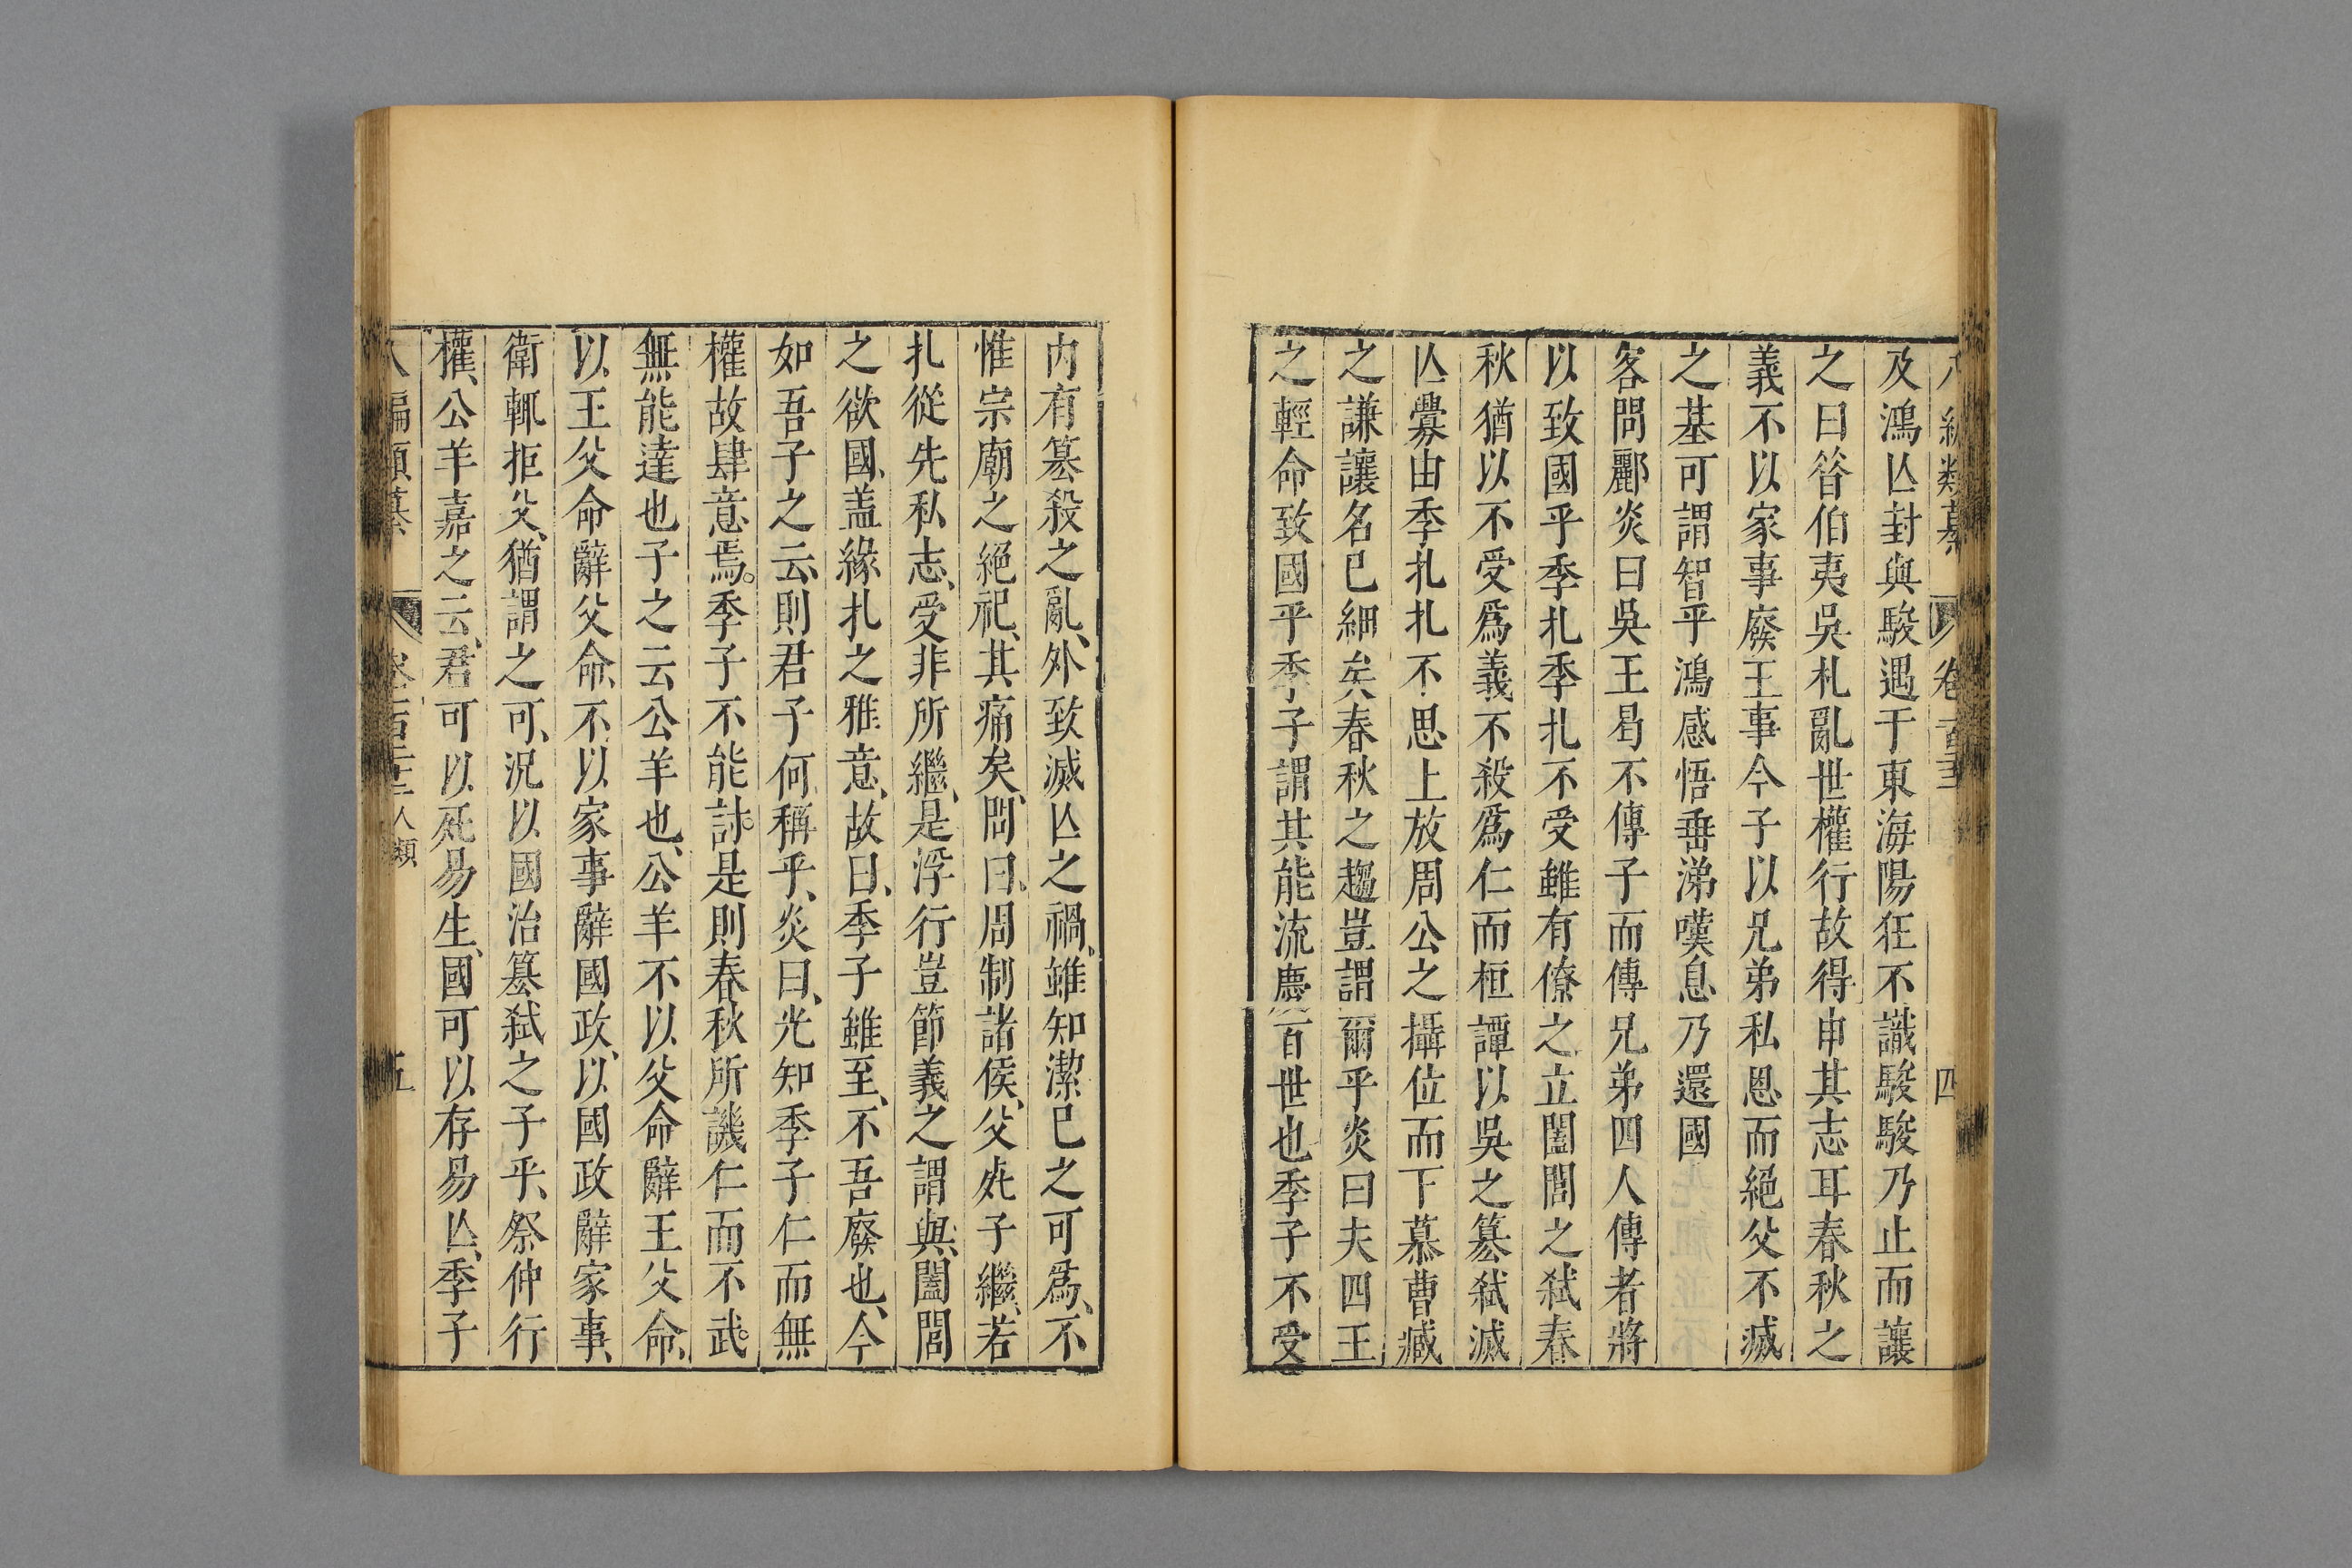 及鴻亾封與駿遇于東海陽狂不識駿駿乃止而讓
之曰昝伯夷吳札亂世權行故得申其志耳春秋之
義不以家事廢王事今子以兄弟私恩而絕父不滅
之基可謂智乎鴻感悟垂涕嘆息乃還國
客問酈炎曰吳王曷不傳子而傳兄弟四人傳者將
以致國乎季札季扎不受雖有僚之立闔閭之弒春
秋猶以不受爲義不殺爲仁而桓譚以吳之篡弒滅
亾釁由季札札不思上放周公之攝位而下慕曹臧
之謙讓名已細矣春秋之趨豈謂爾乎炎曰夫四王
之輕命致國乎季子謂其能流慶百世也季子不受
内有篡殺之亂、外致滅亾之禍、雖知潔已之可爲、不
惟宗廟之絕祀、其痛矣、問曰、周制諸侯、父死子繼、若
扎從先私志、受非所繼、是浮行豈節義之謂與、闔閭
之欲國、盖緣扎之雅意、故曰、季子雖至、不吾廢也、今
如吾子之云、則君子何稱乎、炎曰、光知季子仁而無
權故肆意焉。季子不能討。是則春秋所譏仁而不武。
無能達也子之云公羊也、公羊不以父命辭王父命、
以王父命辭父命、不以家事辭國政、以國政辭家事、
衛輒拒父、猶謂之可、況以國治篡弑之子乎、祭仲行
權、公羊嘉之云、君可以死易生、國可以存易亾、季子